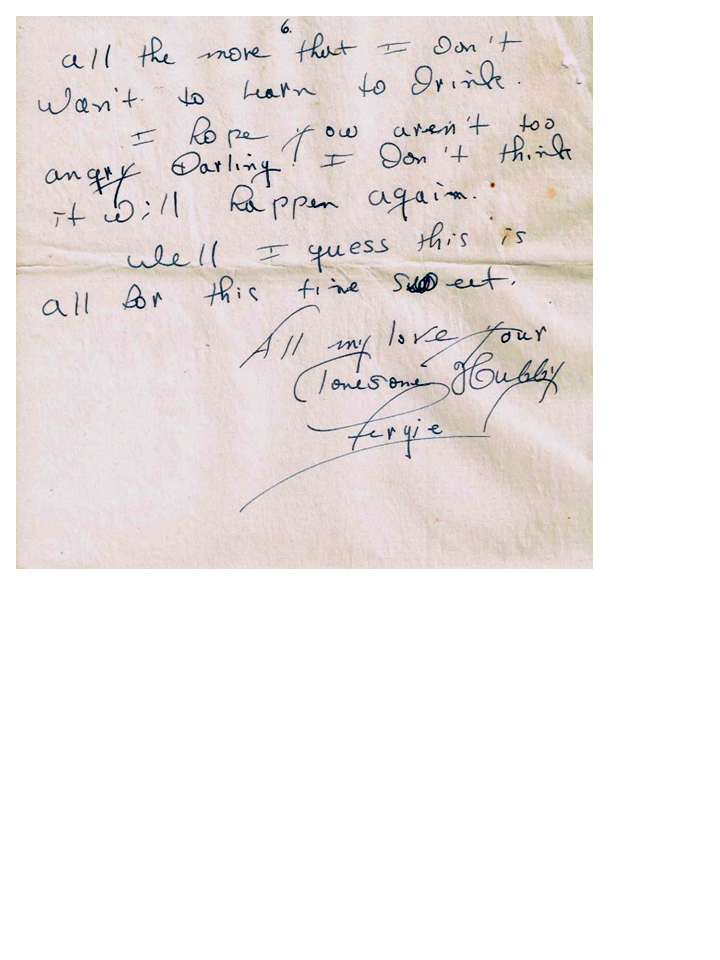 6.
all the more that I don't
Wan't to learn to drink.
I hope you aren't too
angry Darling. I Don't think
it will happen again.
Well I guess this is
all for this time sweet.
All my love your
lonesome Hubby
Fergie